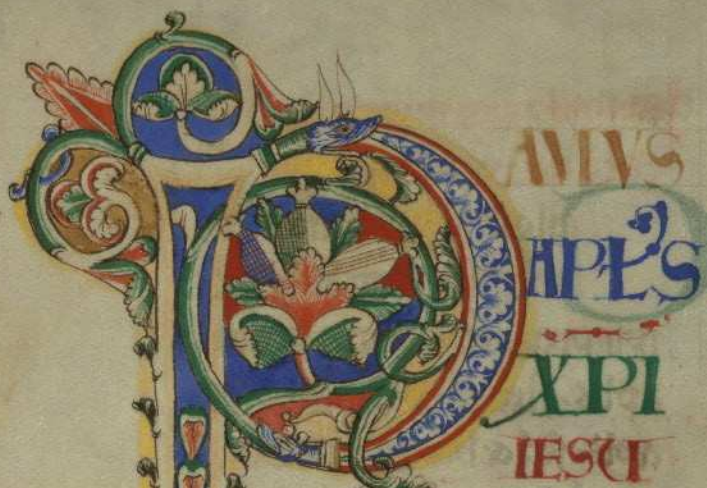 PAVLVS
APLS
XPI
IESU